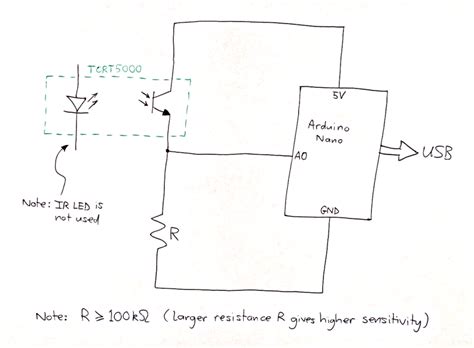 TCRT5000
5V
Arduino
Nano
A0
USB
Note: IR LED is
not used
R
GND
Note: R ⩾ 100kΩ (larger resistance R gives higher sensitivity)